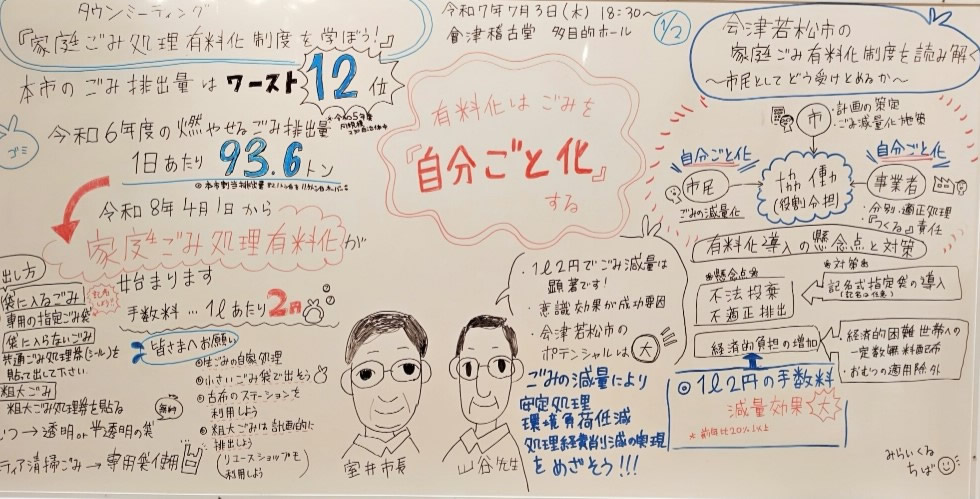 タウンミーティング
『家庭ごみ処理有料化制度を学ぼう！』
令和7年7月3日(木) 18:30～
會津稽古堂 多目的ホール
1/2
本市のごみ排出量はワースト12位
ゴミ
令和6年度の燃やせるごみ排出量
1日あたり 93.6トン
令和8年4月1日から
家庭ごみ処理有料化が
始まります
手数料…1ℓあたり2円
出し方
袋に入るごみ
専用の指定ごみ袋
袋に入らないごみ
共通ごみ処理券(シール)を
貼って出して下さい
粗大ごみ
粗大ごみ処理券を貼る
→透明or半透明の袋
無料
ティア清掃ごみ→専用袋使用
皆さまへお願い
生ごみの自家処理
小さいごみ袋で出そう
古布のステーションを
利用しよう
粗大ごみは計画的に
排出しよう
(リユースショップも
利用しよう)
有料化はごみを
『自分ごと化』
する
室井市長
山谷先生
・1ℓ2円でごみ減量は
顕著です！
・意識効果が成功要因
・会津若松市の
ポテンシャルは大
ごみの減量により
安定処理
環境負荷低減
処理経費削減の実現
をめざそう!!!
会津若松市の
家庭ごみ有料化制度を読み解く
～市民としてどう受けとめるか～
市
・計画の策定
・ごみ減量化施策
自分ごと化
市民
ごみの減量化
協働
(役割分担)
自分ごと化
事業者
・分別・適正処理
・『つくる』責任
有料化導入の懸念点と対策
懸念点
不法投棄
不適正排出
対策
記名式指定袋の導入
(記名は任意)
経済的負担の増加
・経済的困難世帯への
一定数無料配布
・おむつの適用除外
◎1ℓ2円の手数料
減量効果大
みらいくる
ちば